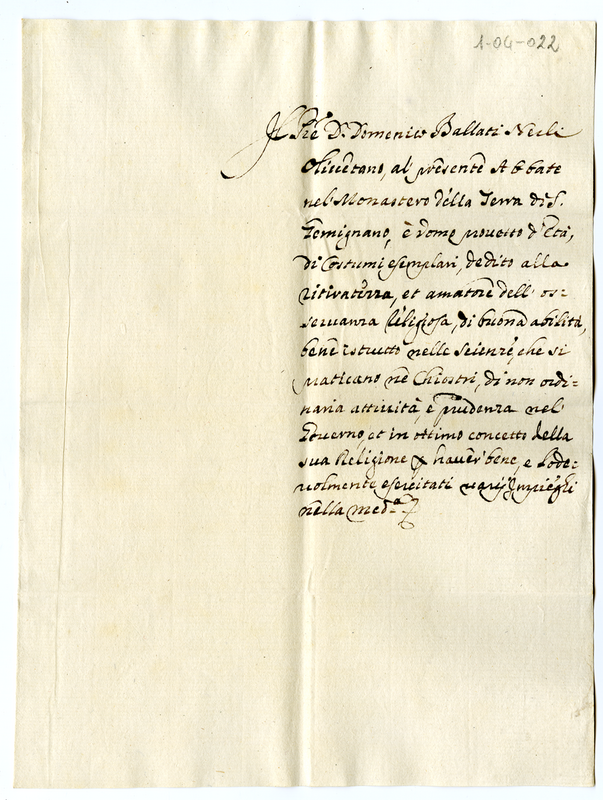 1-04-022
Il Pře D. Domenico Ballati Nerli
Olivetano, al presente Abbate
nel Monastero della Terra di S.
Gemignano, è Uomo provetto d'Età,
di Costumi esemplari, dedito alla
ritiratezza, et amatore dell' os=
servanza Religiosa, di buona abilità,
bene istrutto nelle scienze, che si
praticano nè Chiostri, di non ordi=
naria attività, e prudenza nel
Governo, et in ottimo concetto della
sua Religione haver bene, e lode=
volmente esercitati varij Impieghi
nella med.ª